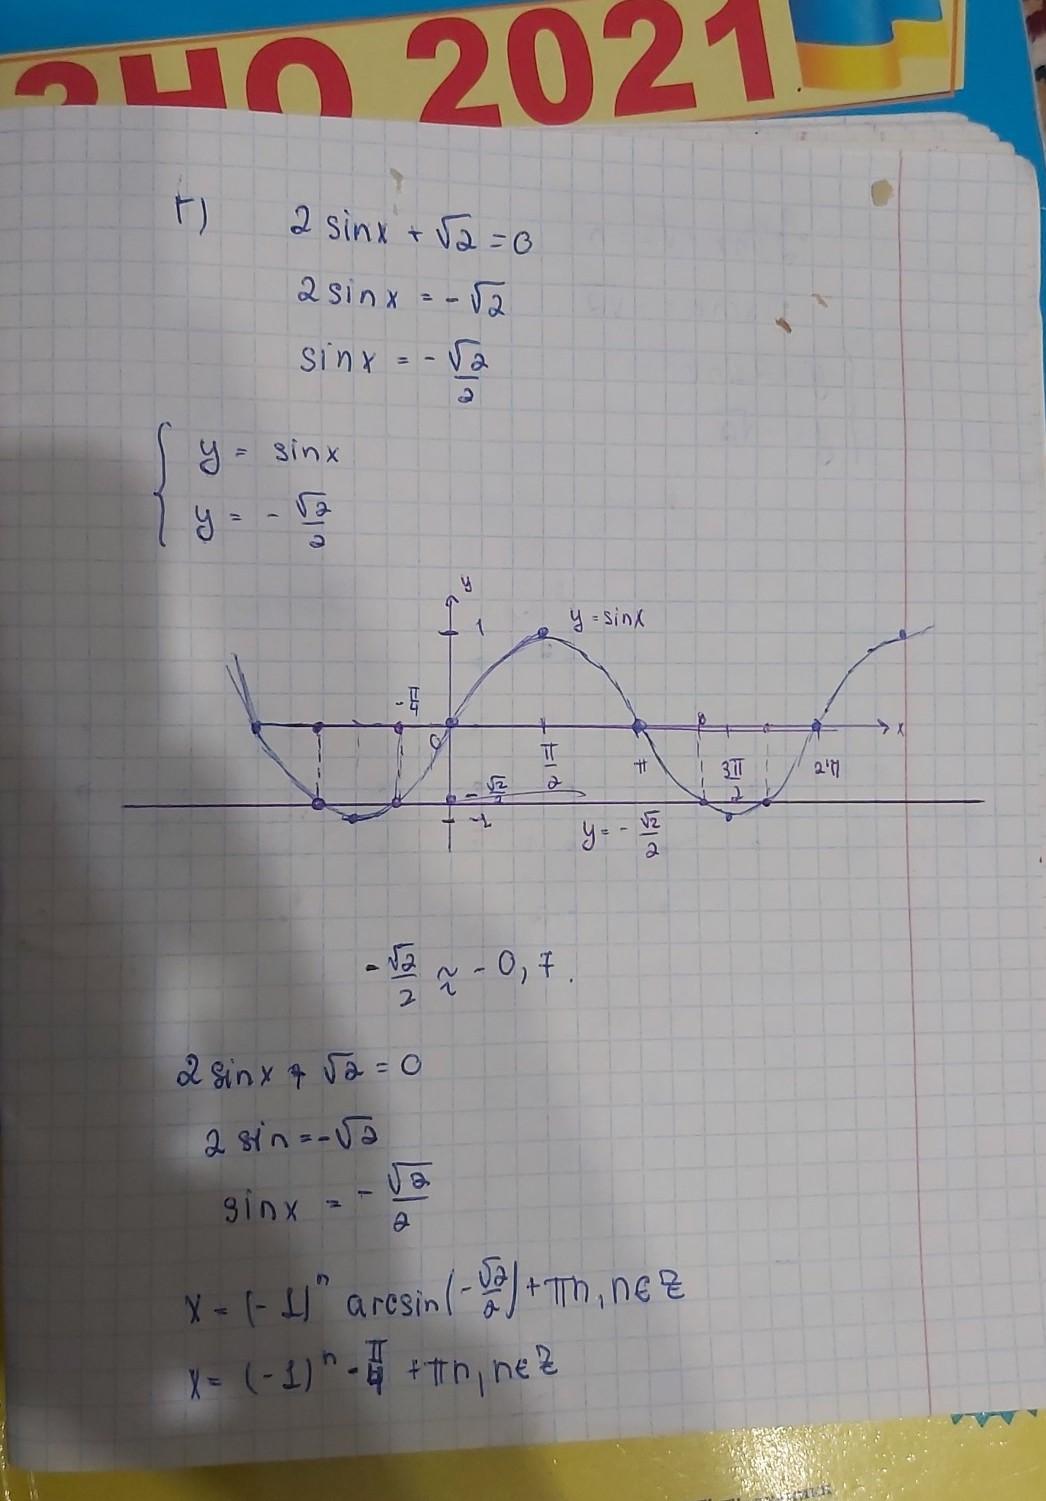 ЗНО 2021
г) 2 sinx + √2 = 0
2 sinx = - √2
sinx = - √2/2
{ y = sinx
y = - √2/2
y
1 y = sinx
- π/4
0 x
π/2 π 3π/2 2π
- √2/2
-1 y = - √2/2
- √2/2 ≈ - 0,7.
2 sinx + √2 = 0
2 sin = - √2
sinx = - √2/2
x = (- 1)ⁿ arcsin(- √2/2) + πn, n ∈ Z
x = (- 1)ⁿ - π/4 + πn, n ∈ Z